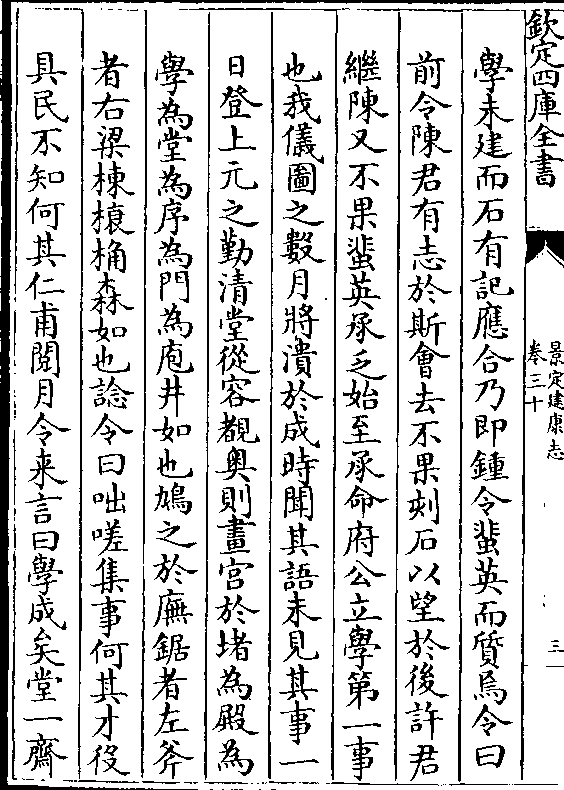 欽定四庫全書
景定建康志
卷三十
三
學未建而石有記應合乃即鍾令蜚英而質焉令曰
前令陳君有志於斯會去不果刻石以望於後許君
繼陳又不果蜚英承乏始至承命府公立學第一事
也我儀圖之數月將潰於成時聞其語未見其事一
日登上元之勤清堂從容覩奧則畫宮於堵為殿為
學為堂為序為門為庖井如也鳩之於廡鋸者左斧
者右梁棟榱桷森如也諗令曰咄嗟集事何其才役
具民不知何其仁甫閲月令来言曰學成矣堂一齋